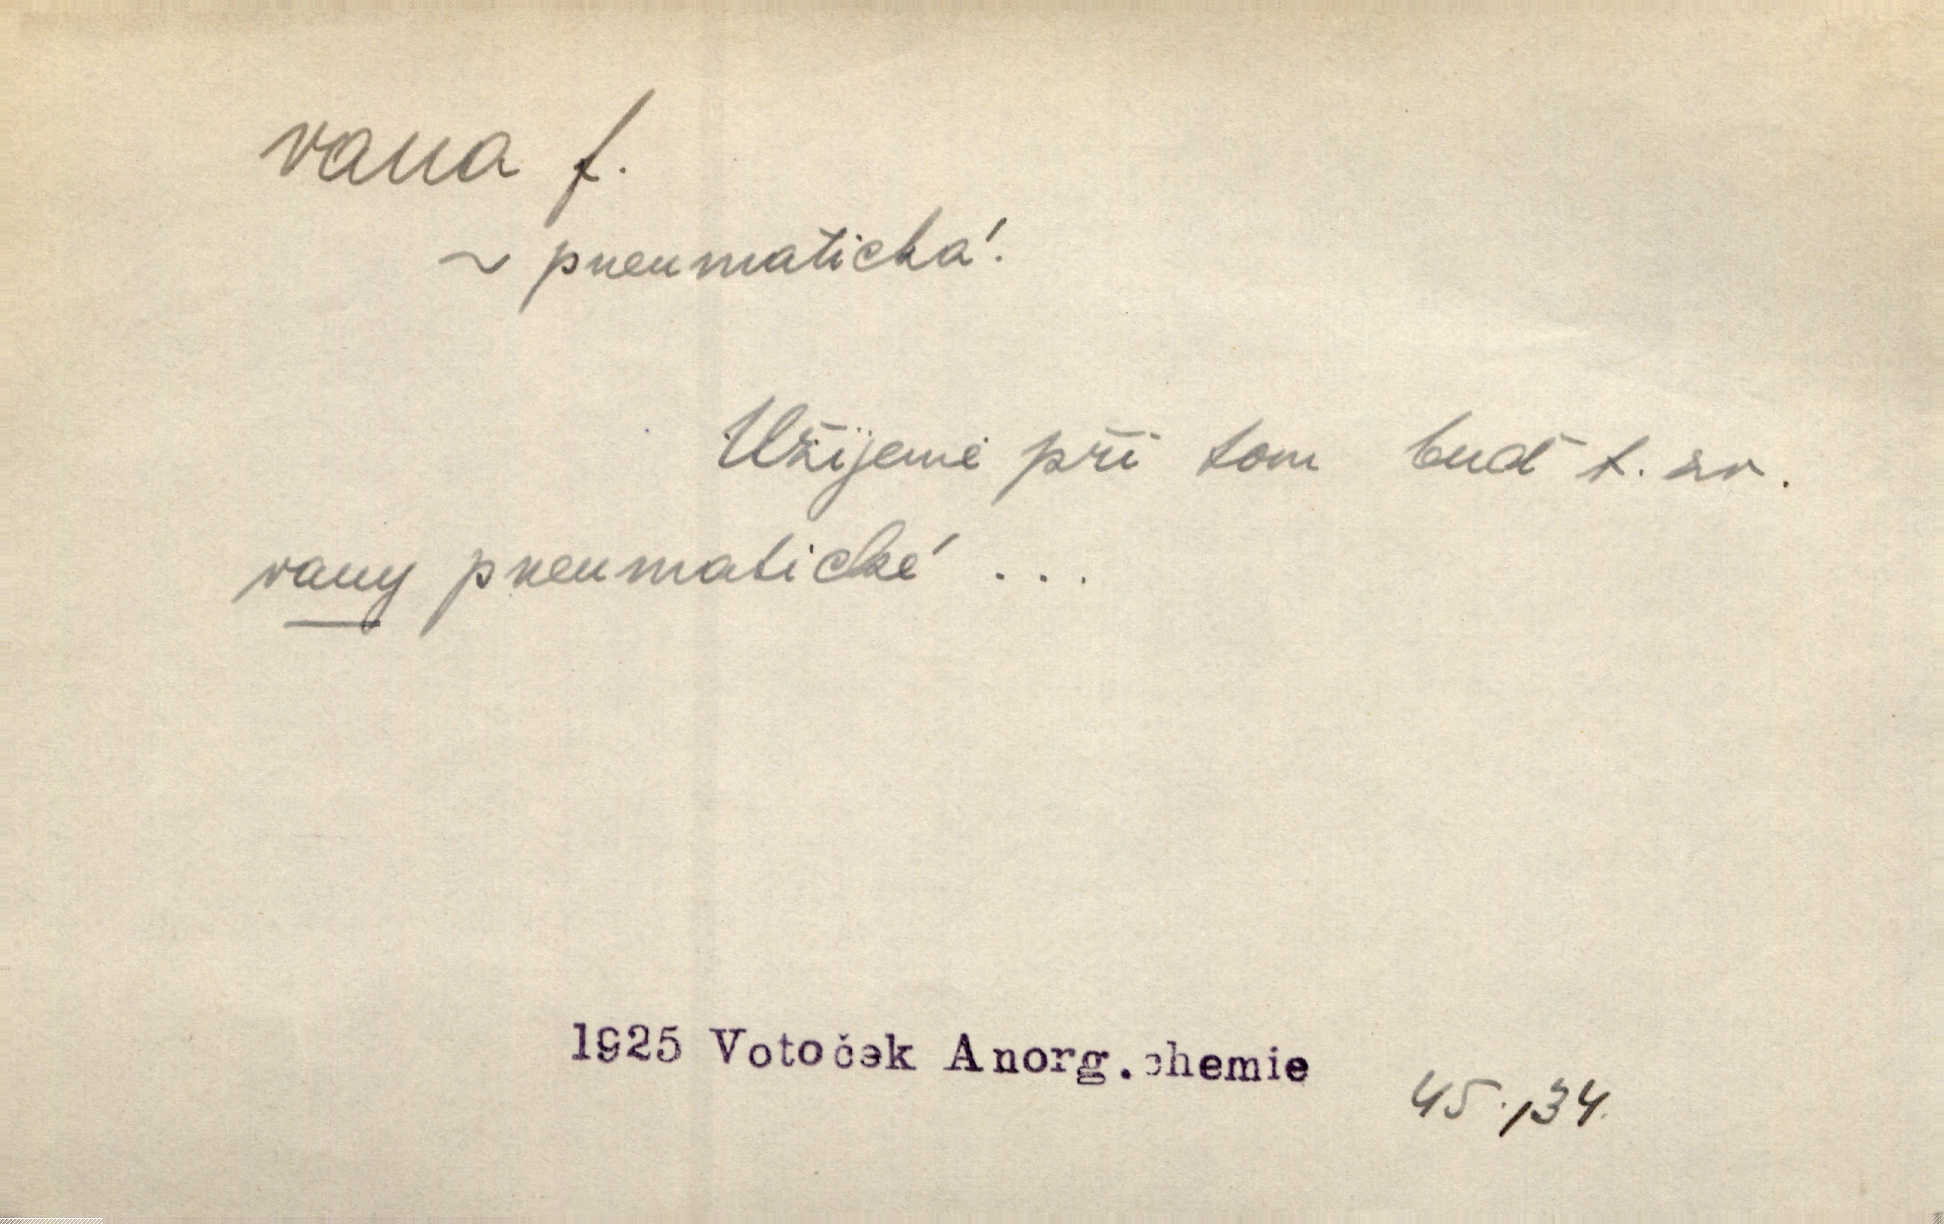 vana f.
~ pneumatická.
Užijeme při tom buď t. zv.
vany pneumatické ...
1925 Votoček Anorg.chemie
45.,34.